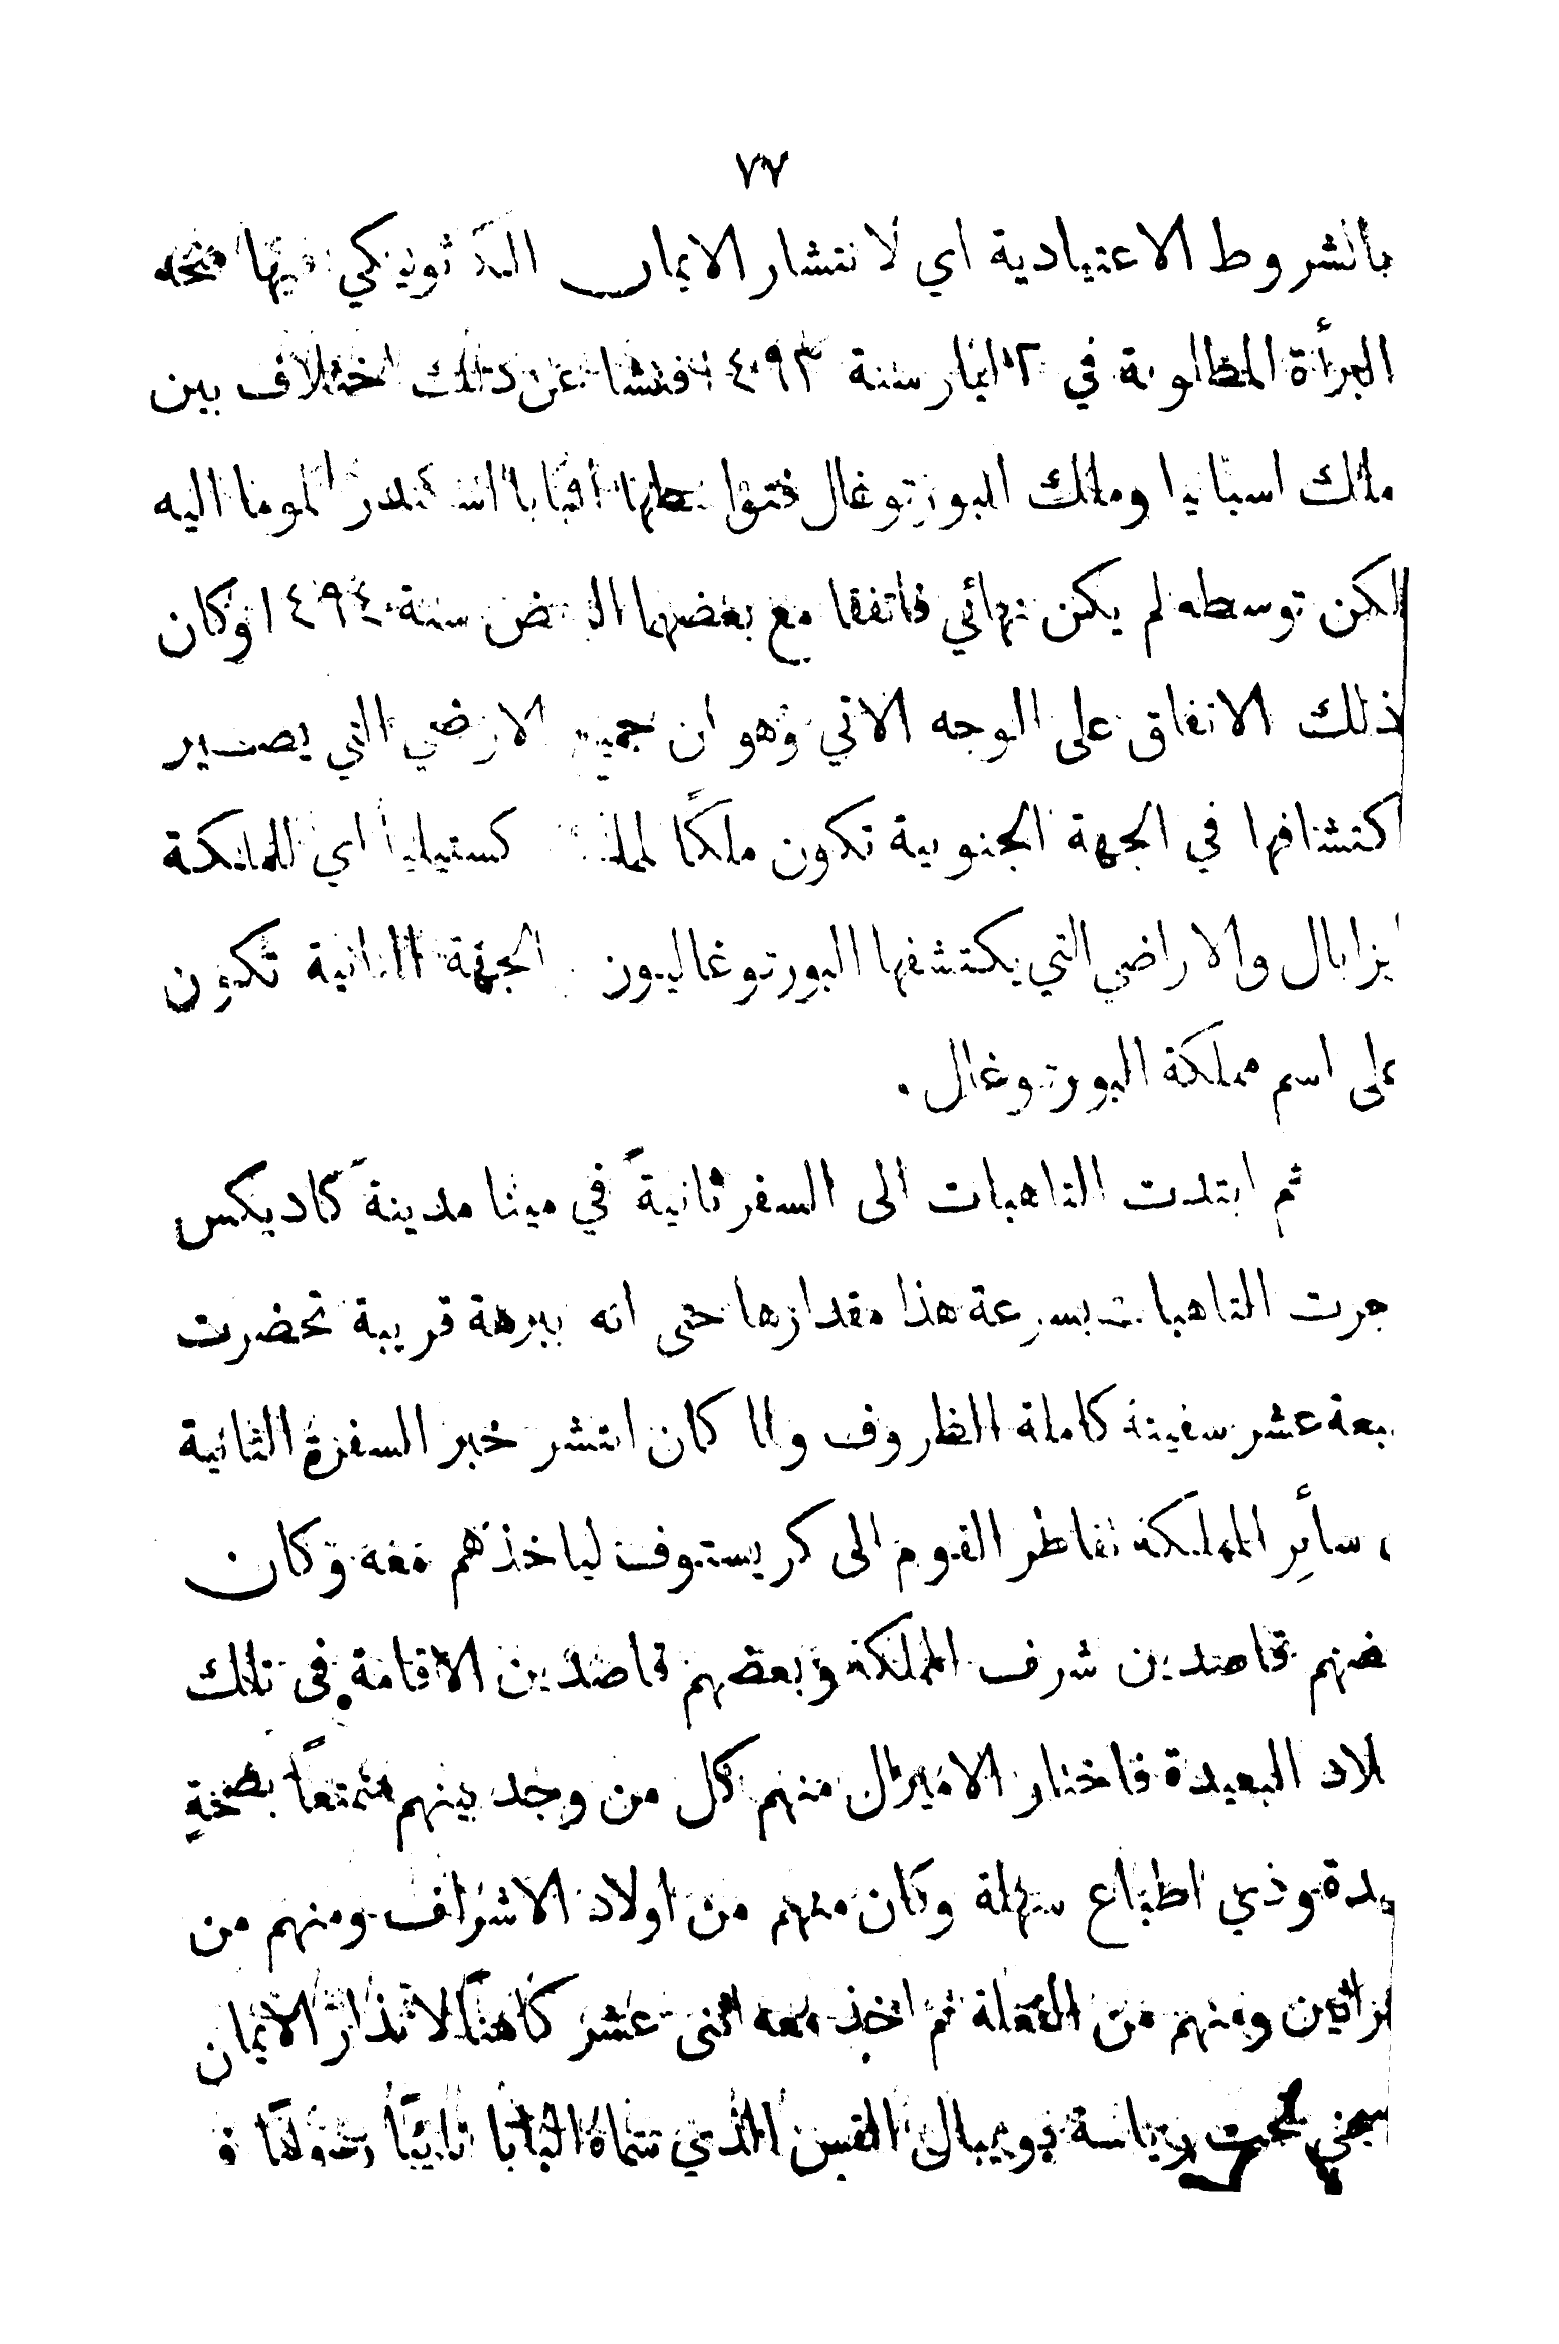 ٧٧
بالشروط الاعتيادية اي لانتشار الايمان الكاثوليكي فيها فمنحه
البرأة المطلوبة في ٢ ايار سنة ١٤٩٣ فنشا عن ذلك اختلاف بين
ملك اسبانيا وملك البورتوغال فتوسطها البابا اسكندر الموما اليه
لكن توسطه لم يكن نهائي فاتفقا مع بعضهما البعض سنة ١٤٩٤ وكان
ذلك الاتفاق على الوجه الاتي وهو ان جميع الارضي التي يصير
اكتشافها في الجهة الجنوبية تكون ملكًا لملكة كستيليا اي للملكة
ايزابال والاراضي التي يكتشفها البورتوغاليون الجهة الثانية تكون
على اسم مملكة البورتوغال .
ثم ابتدت التاهبات الى السفر ثانيةً في مينا مدينة كاديكس
جرت التاهبات بسرعة هذا مقدارها حتى انه ببرهة قريبة تحضرت
بعة عشر سفينة كاملة الظروف ولما كان انتشر خبر السفرة الثانية
سائر المملكة تقاطر القوم الى كريستوف لياخذهم معه وكان
ضهم قاصدين شرف المملكة وبعضهم قاصدين الاقامة في تلك
لاد البعيدة فاختار الاميرال منهم كل من وجد بينهم متمتعاً بصحةٍ
يدة وذي اطباع سهلة وكان منهم من اولاد الاشراف ومنهم من
زائين ومنهم من الفعلة ثم اخذ معه اثنى عشر كاهناً لانذار الايمان
سيحي تحت رياسة بويبال القس الذي سماه البابا نايبًا رسوليًا